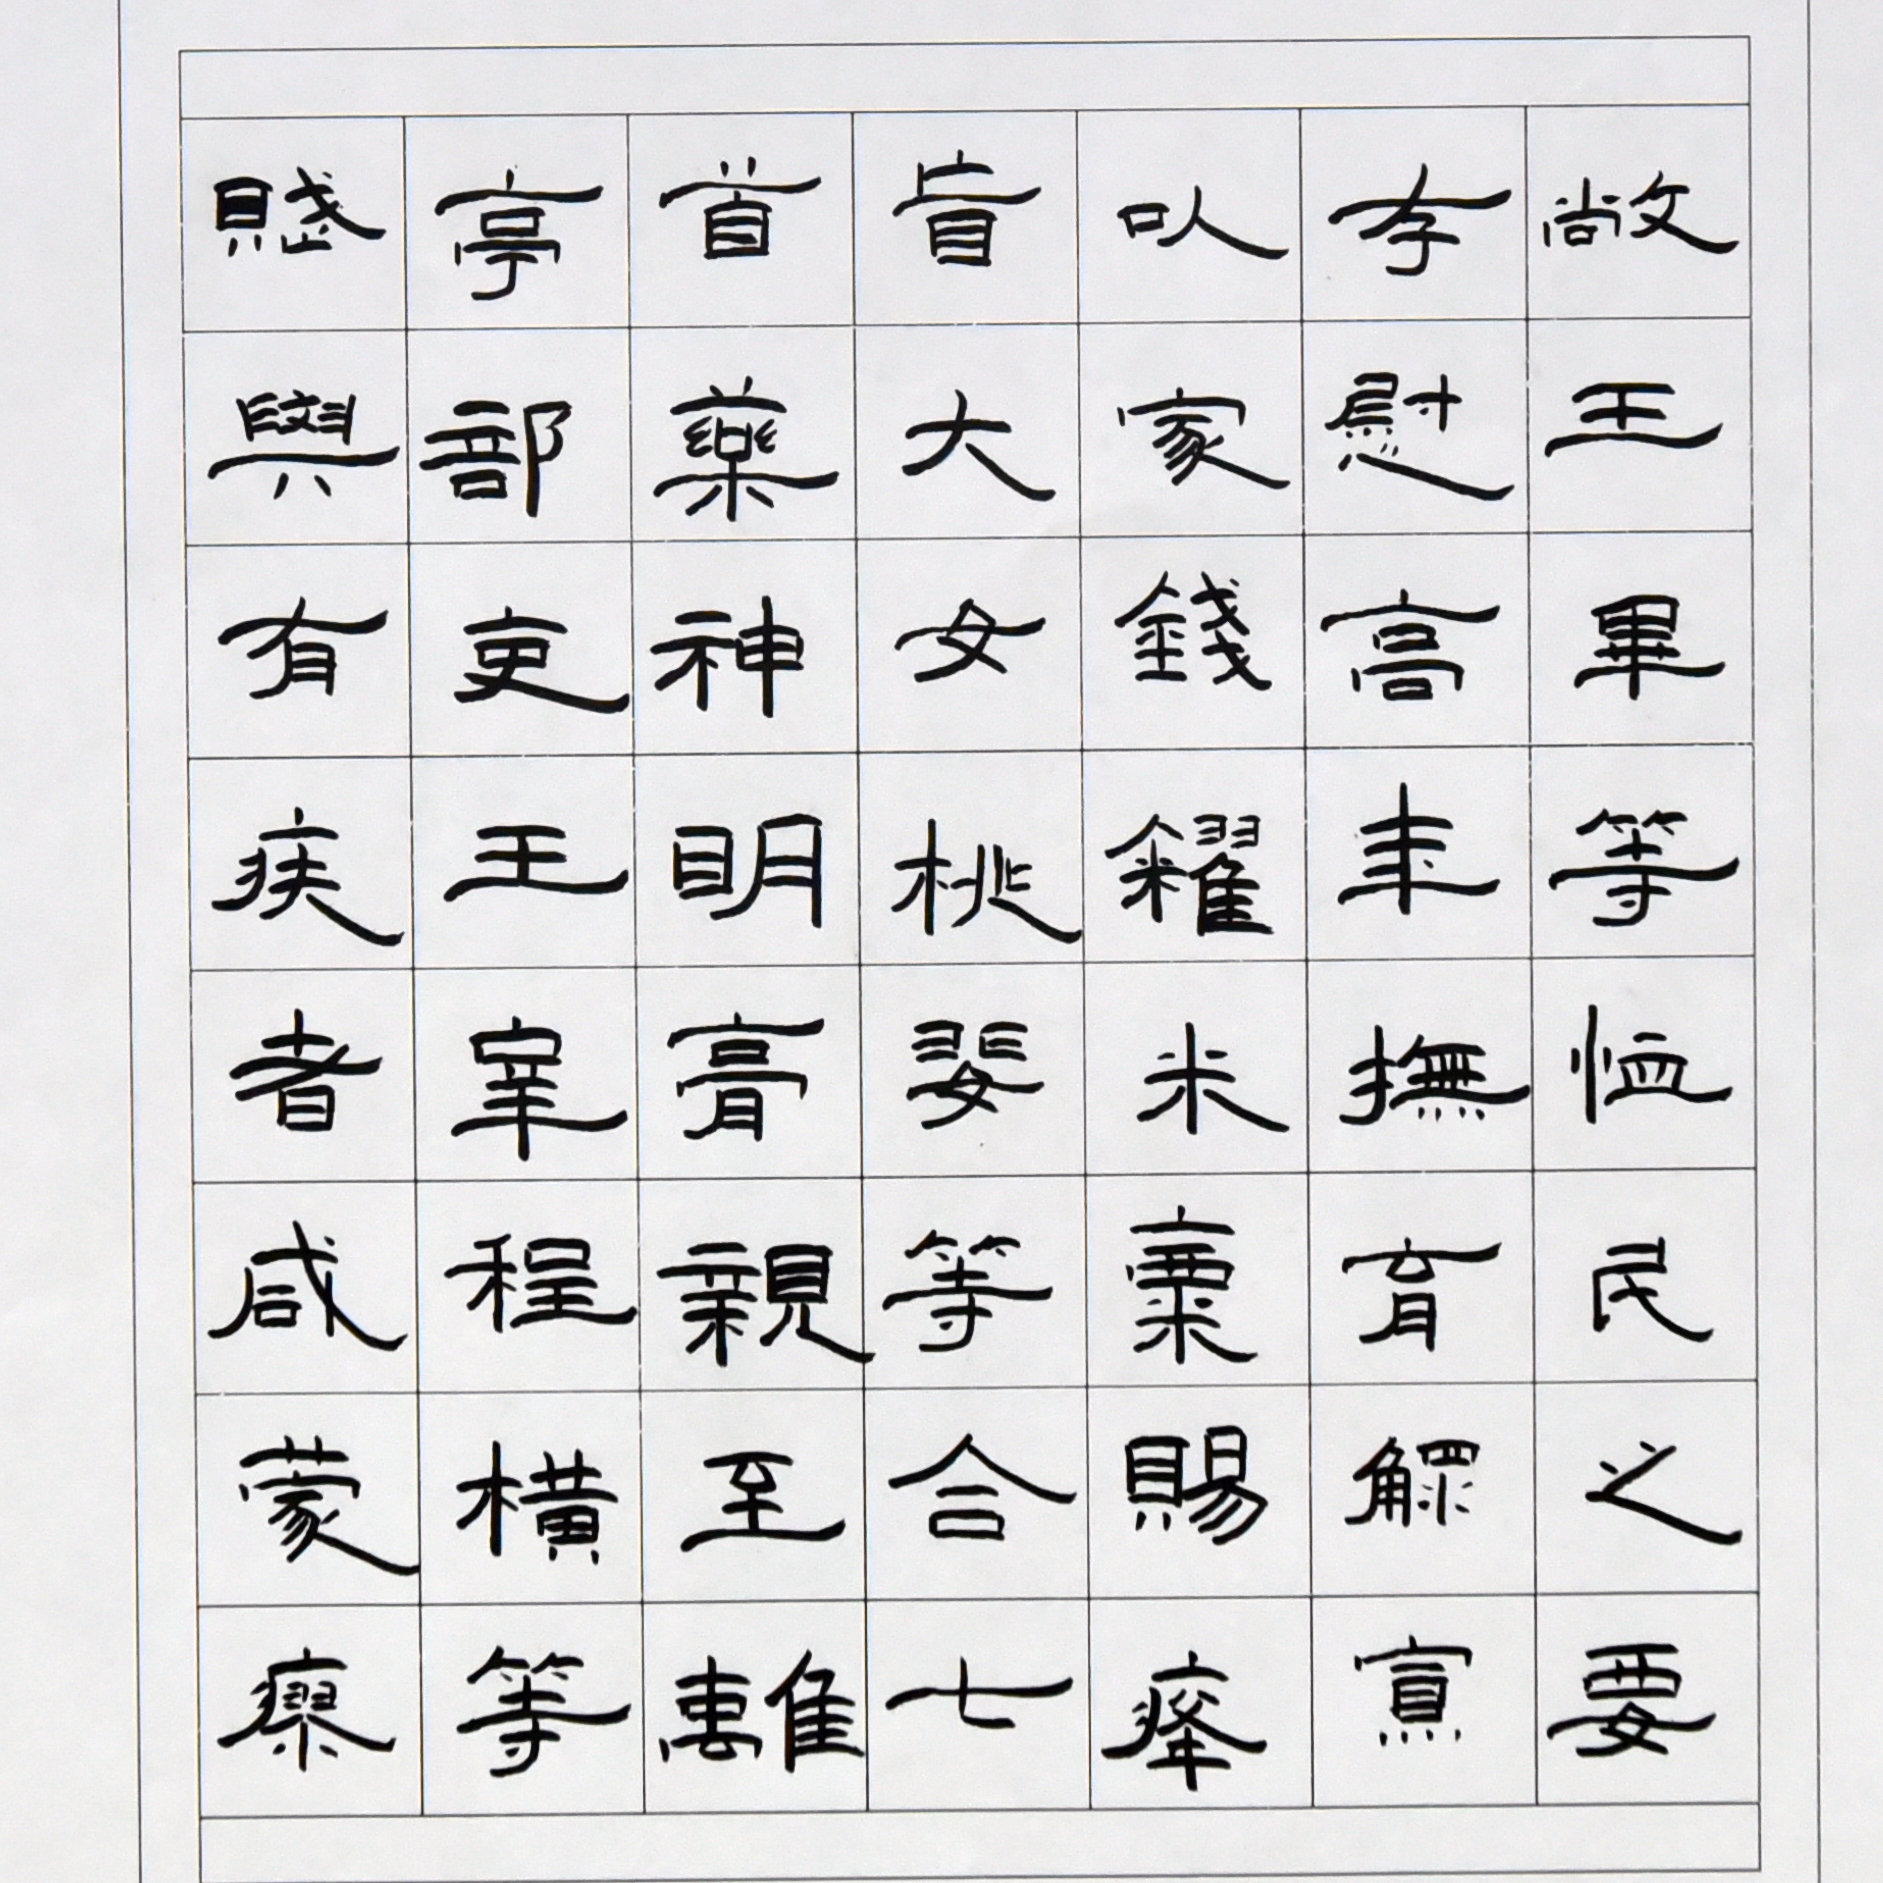 敞王畢等恤民之要
存慰高年撫育鰥寡
以家錢糴米粟賜癃
盲大女桃婓等合七
首藥神明膏親至離
亭部吏王宰程橫等
賦與有疾者咸蒙瘳